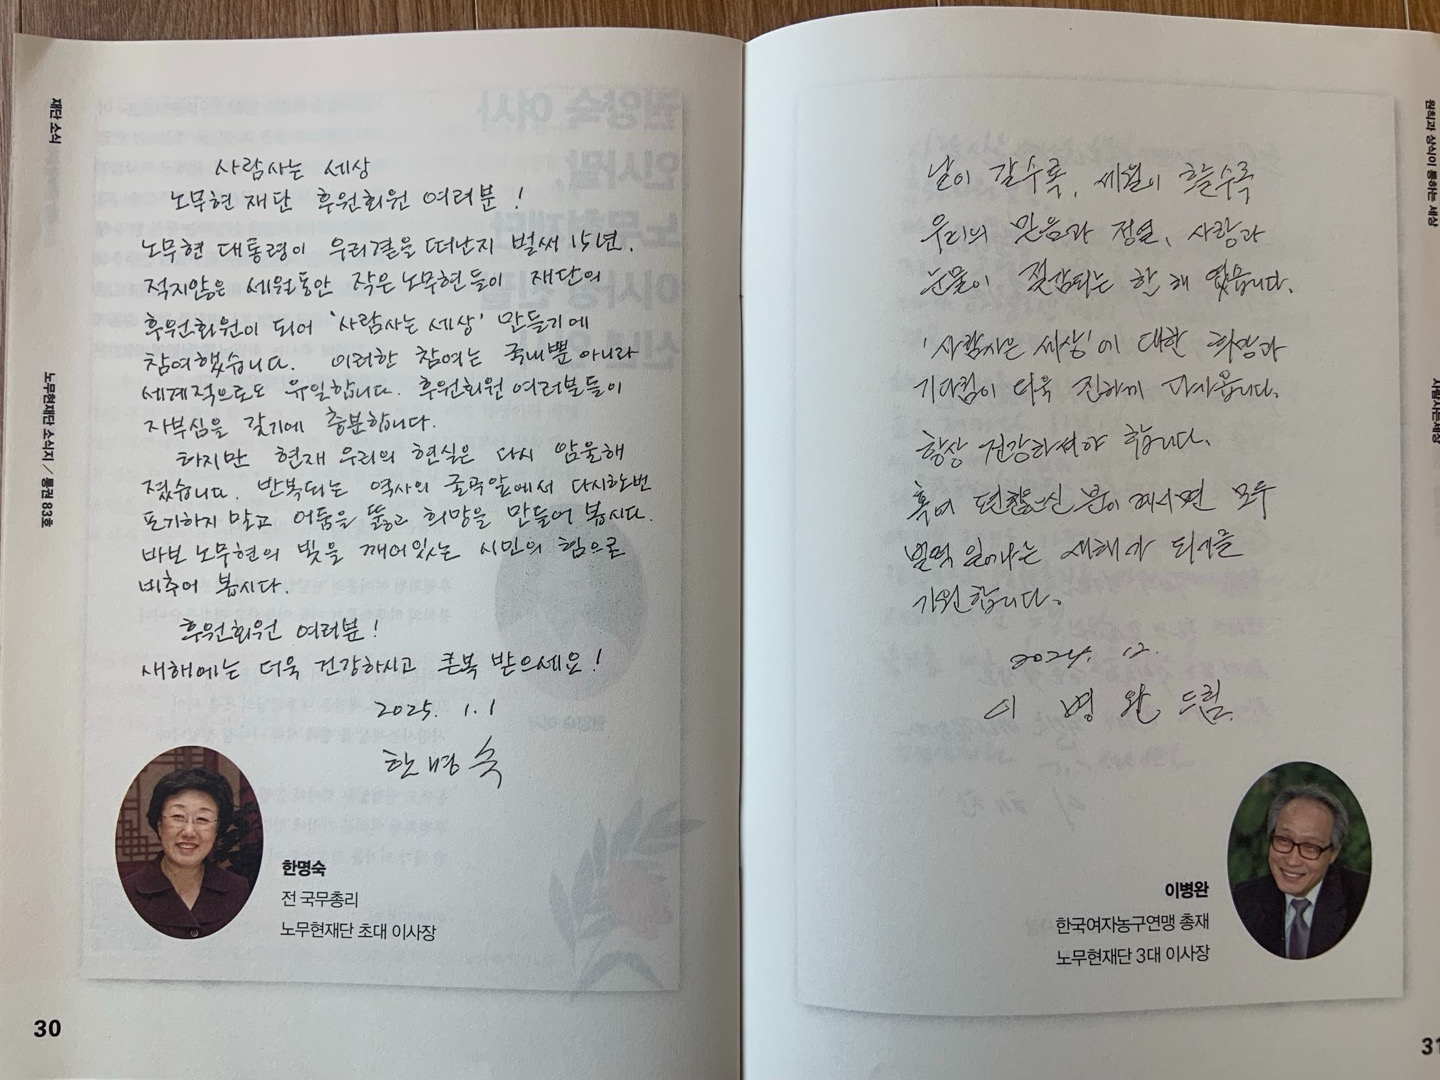 재단 소식
노무현재단 소식지 / 통권 83호
사람사는 세상
노무현 재단 후원회원 여러분!
노무현 대통령이 우리곁을 떠난지 벌써 15년.
적지않은 세월동안 작은 노무현들이 재단의
후원회원이 되어 '사람사는 세상' 만들기에
참여했습니다. 이러한 참여는 국내뿐 아니라
세계적으로도 유일합니다. 후원회원 여러분들이
자부심을 갖기에 충분합니다.
하지만 현재 우리의 현실은 다시 암울해
졌습니다. 반복되는 역사의 굴곡앞에서 다시한번
포기하지 말고 어둠을 뚫고 희망을 만들어 봅시다.
바보 노무현의 빛을 깨어있는 시민의 힘으로
비추어 봅시다.
후원회원 여러분!
새해에는 더욱 건강하시고 큰복 받으세요!
2025. 1. 1
한명숙
한명숙
전 국무총리
노무현재단 초대 이사장
30
날이 갈수록, 세월이 흐를수록
우리의 믿음과 정열, 사랑과
눈물이 절감되는 한 해 였습니다.
'사람사는 세상'에 대한 희망과
기다림이 더욱 진하게 다가옵니다.
항상 건강하셔야 합니다.
혹여 편찮으신 분이 계시면 모두
벌떡 일어나는 새해가 되기를
기원합니다.
2024. 12.
이 병 완 드림.
이병완
한국여자농구연맹 총재
노무현재단 3대 이사장
원칙과 상식이 통하는 세상
사람사는세상
31